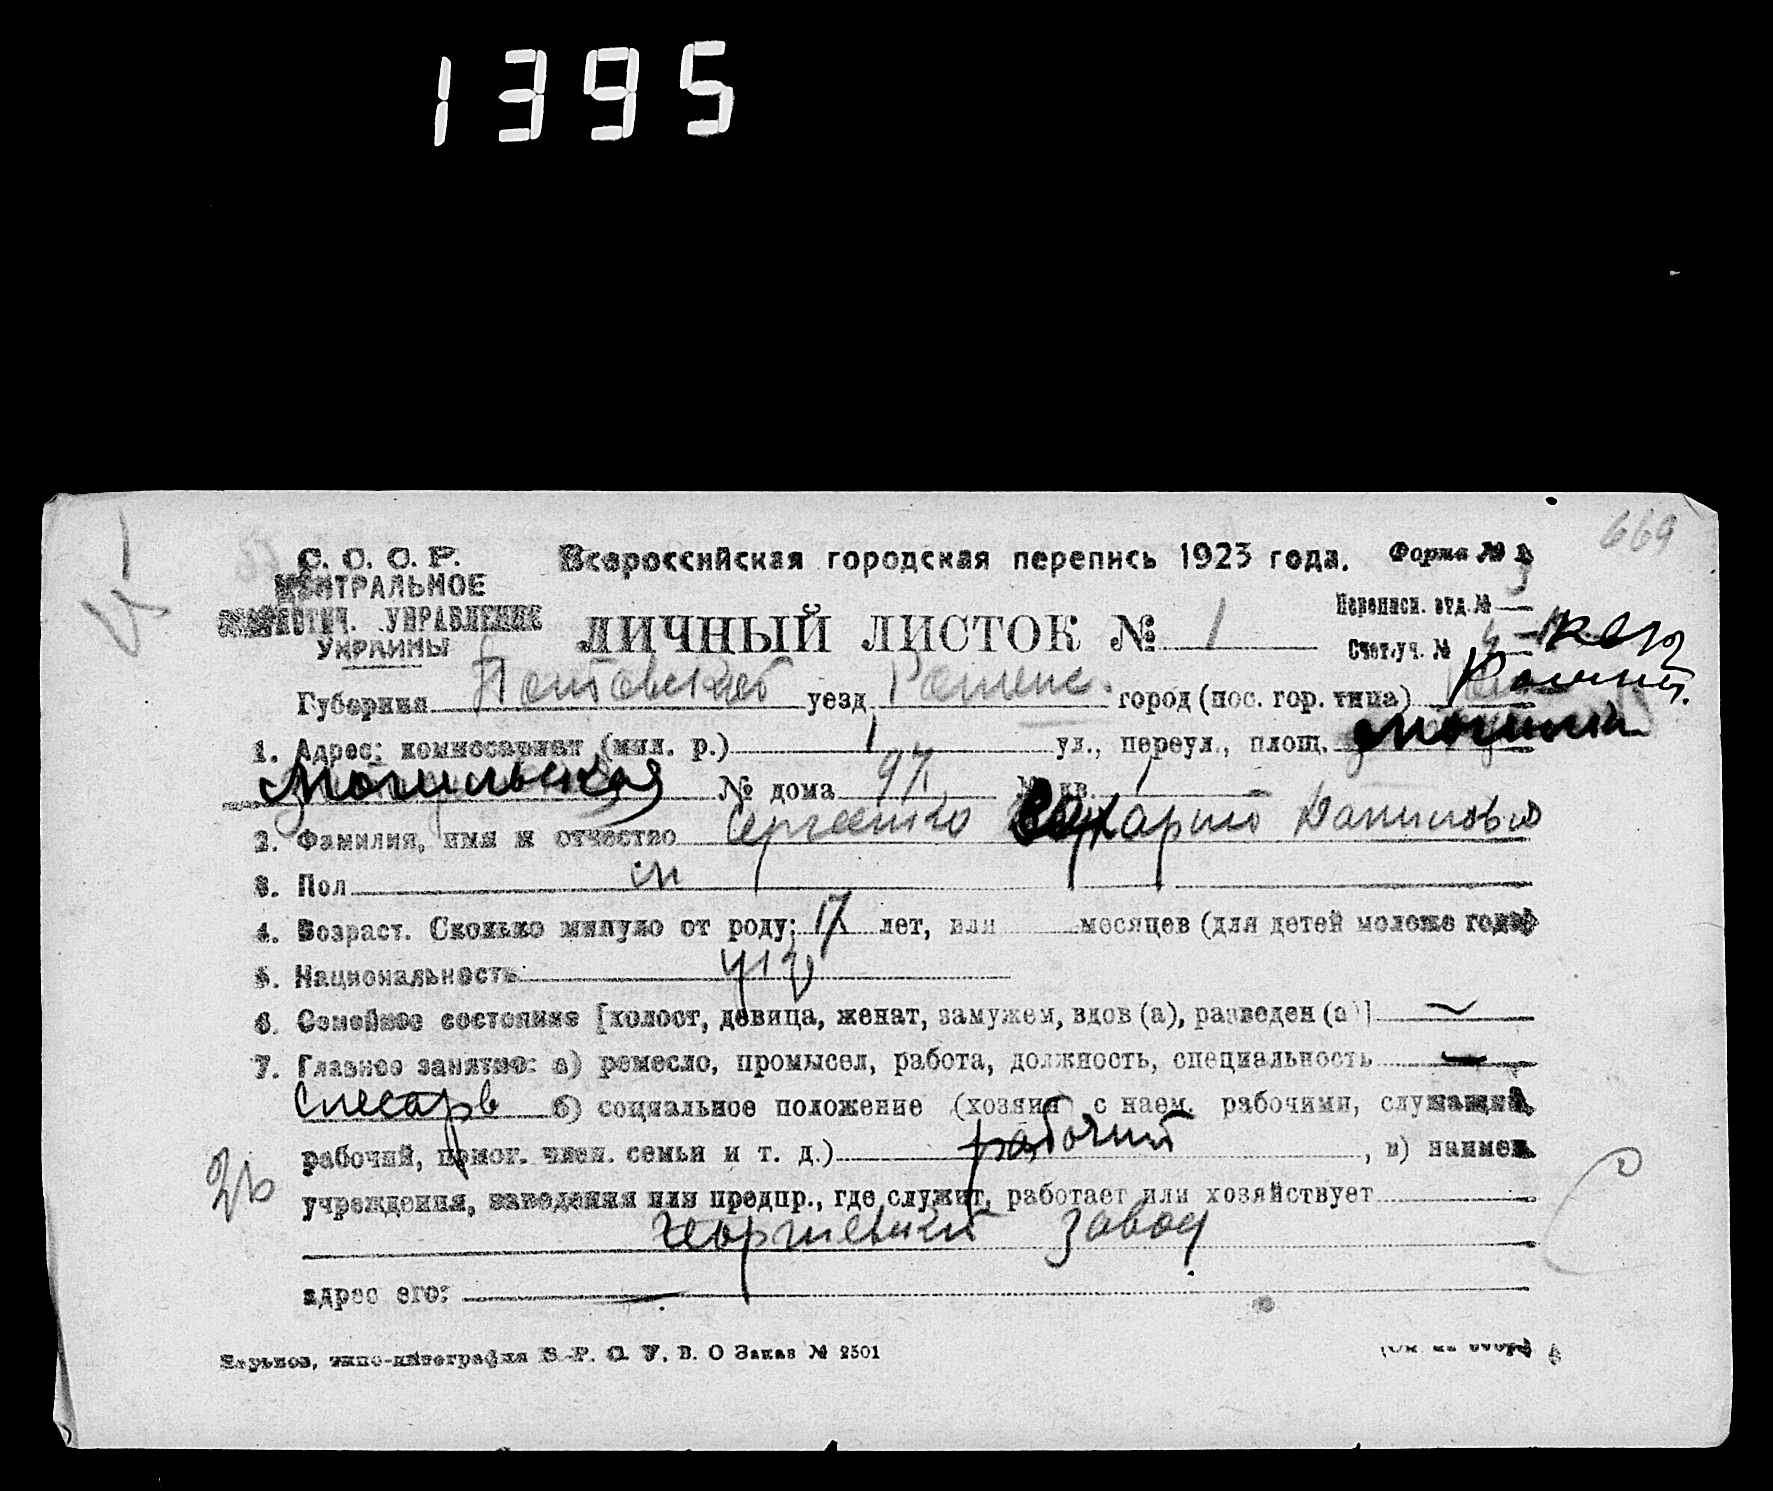 1395
669
С. С. С. Р. Всероссийская городская перепись 1923 года. Форма № 3
ЦЕНТРАЛЬНОЕ
СТАТИСТИЧ. УПРАВЛЕНИЕ
УКРАИНЫ
ЛИЧНЫЙ ЛИСТОК № 1
Переписн. отд. №
Счет. уч. №
Губерния Полтавская уезд Роменс. город (пос. гор. типа) Ромны
1. Адрес: комиссариат (мил. р.) 1 ул., переул., площ.
Могильская № дома 97 № кв. 1
2. Фамилия, имя и отчество Сергеенко Захарий Данилович
3. Пол м
4. Возраст. Сколько минуло от роду: 17 лет, или месяцев (для детей моложе года)
5. Национальность укр
6. Семейное состояние [холост, девица, женат, замужем, вдов (а), разведен (а)]
7. Главное занятие: а) ремесло, промысел, работа, должность, специальность
Слесарь б) социальное положение (хозяин с наем. рабочими, служащий,
рабочий, помог. член. семьи и т. д.) рабочий, в) наимен.
учреждения, заведения или предпр., где служит, работает или хозяйствует
завод
адрес его:
Харьков, типо-литография В. О Заказ № 2501